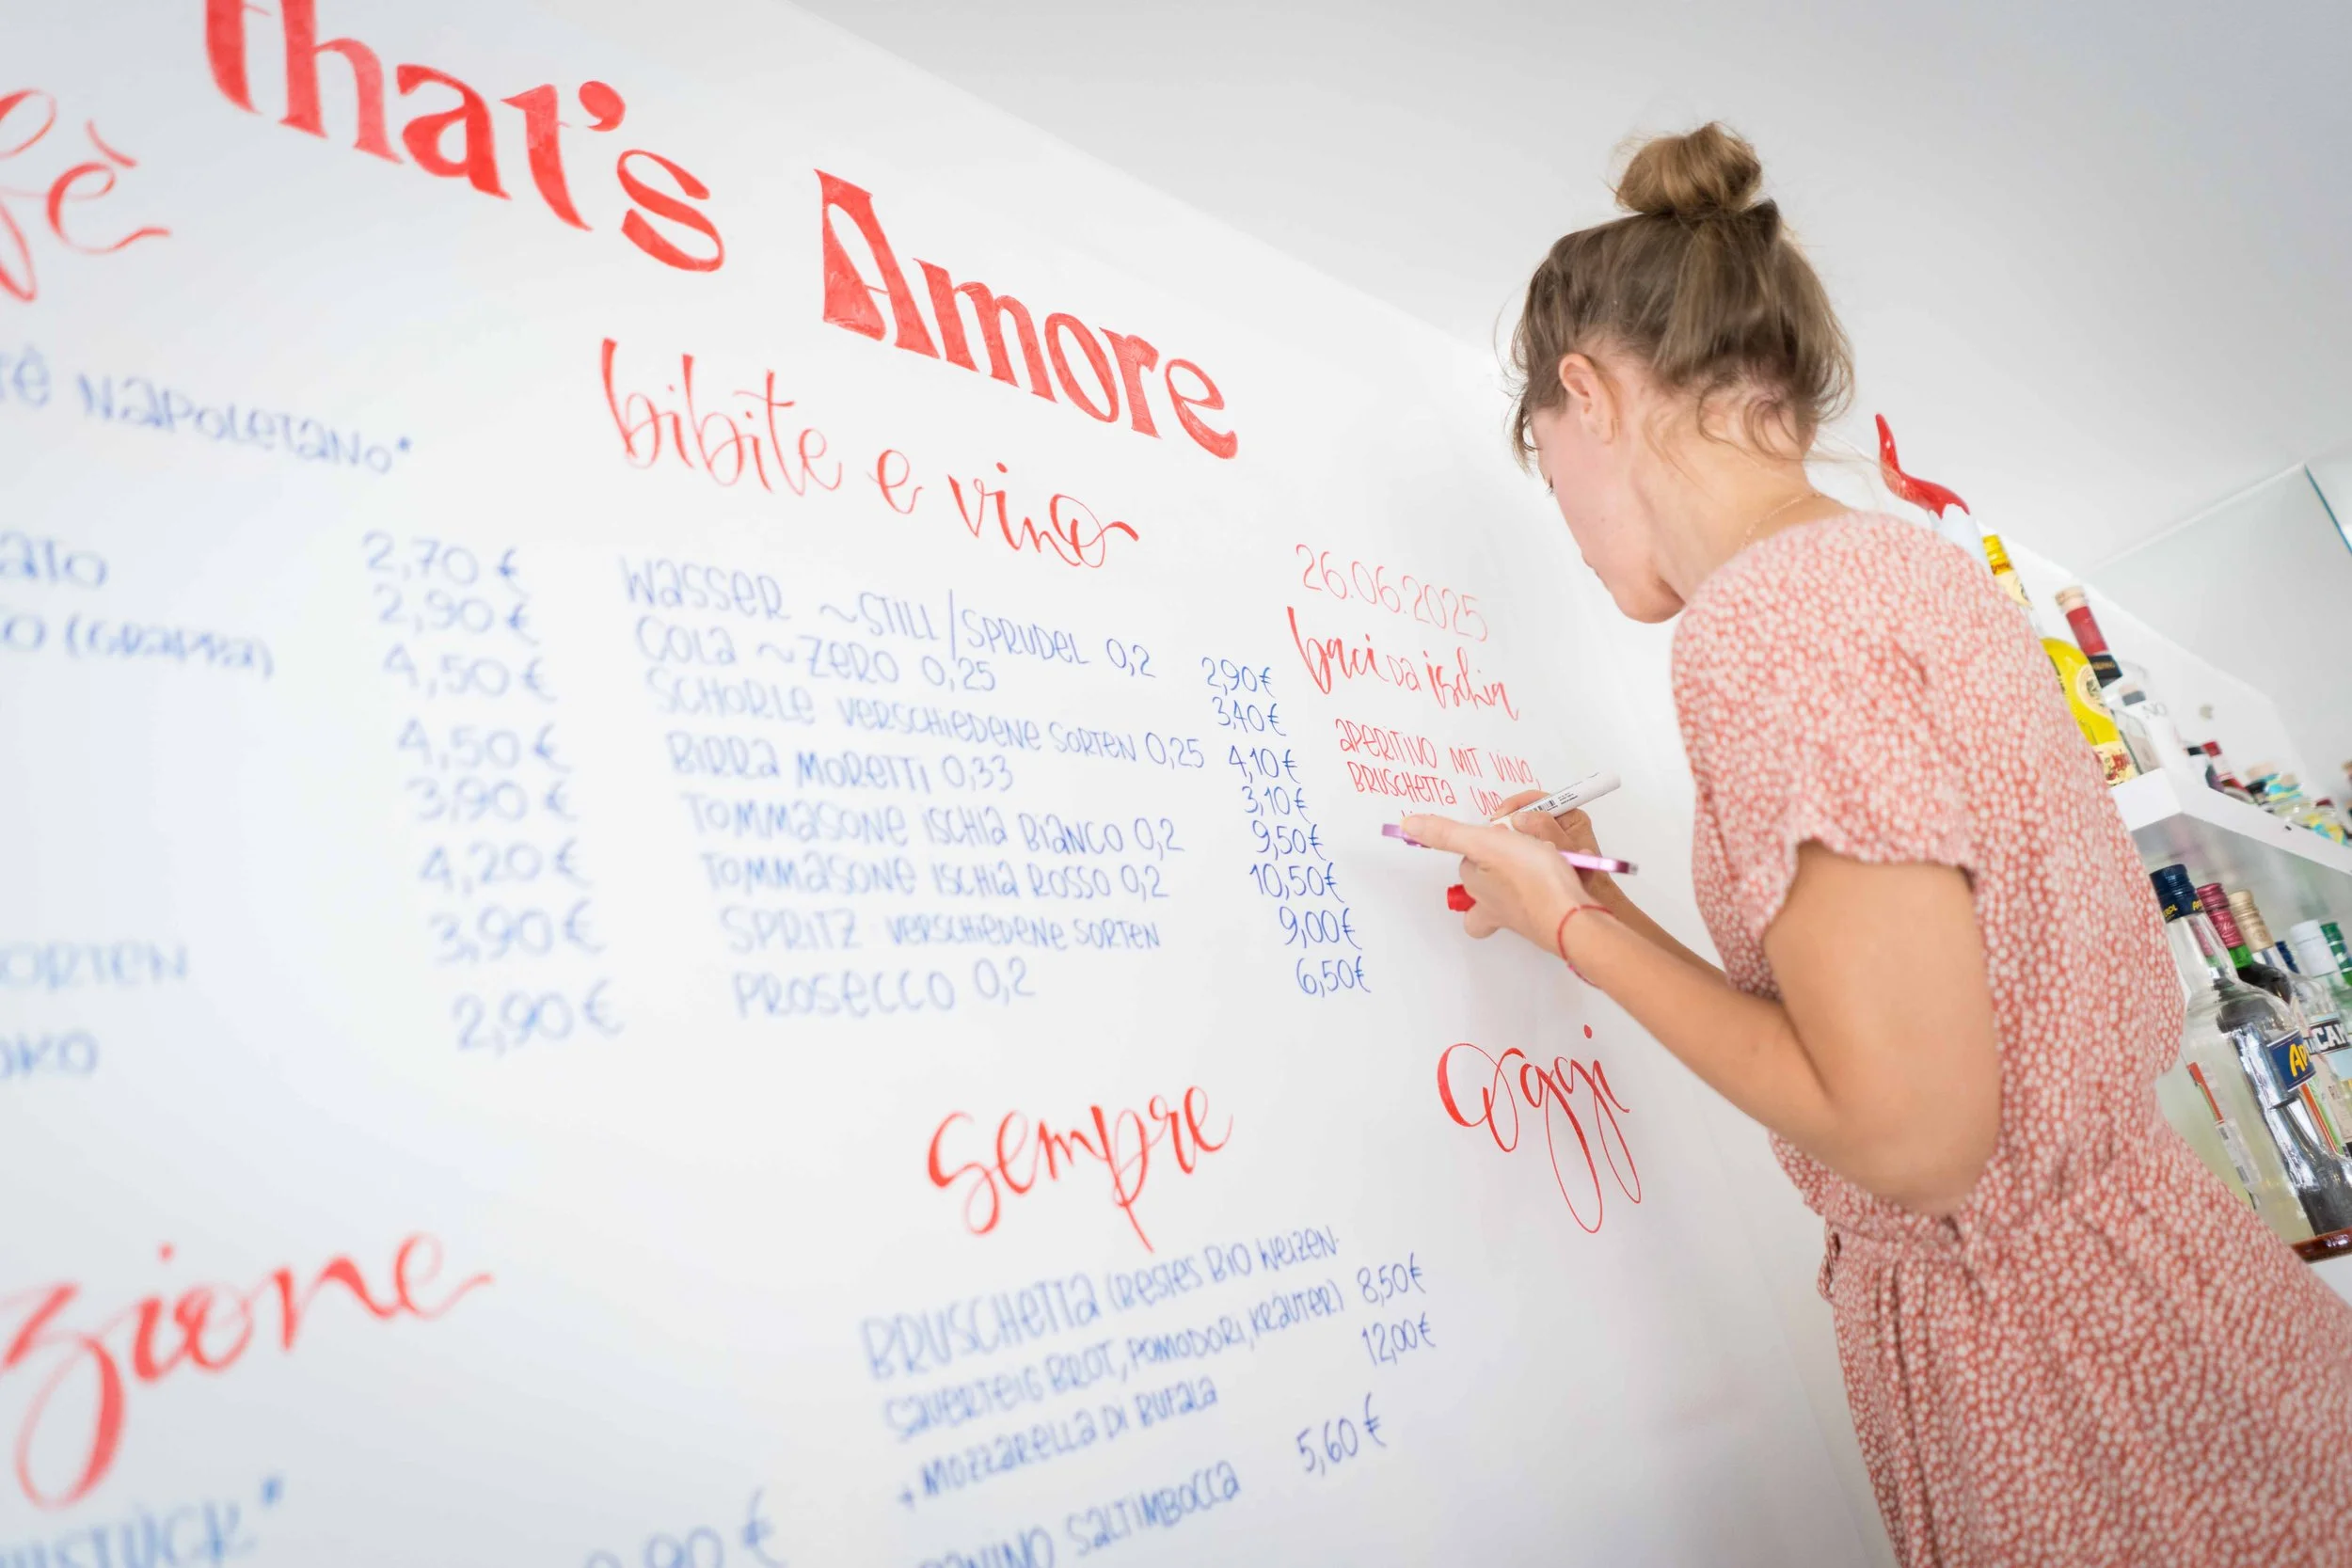 that's Amore
fè
NAPOLETANO*
(GRAPPA)
2,70 €
2,90 €
4,50 €
4,50 €
3,90 €
4,20 €
3,90 €
2,90 €
bibite e vino
WASSER ~STILL/SPRUDEL 0,2 2,90€
COLA ~ZERO 0,25 3,40€
SCHORLE VERSCHIEDENE SORTEN 0,25 4,10€
BIRRA MORETTI 0,33 3,10€
TOMMASONE ISCHIA BIANCO 0,2 9,50€
TOMMASONE ISCHIA ROSSO 0,2 10,50€
SPRITZ VERSCHIEDENE SORTEN 9,00€
PROSECCO 0,2 6,50€
26.06.2025
baci DA ischia
APERITIVO MIT VINO,
BRUSCHETTA UND
sempre
BRUSCHETTA (RESTES BIO WEIZEN-
SAUERTEIG BROT, POMODORI, KRÄUTER) 8,50€
+ MOZZARELLA DI BUFALA 12,00€
PANINO SALTIMBOCCA 5,60€
oggi
zione